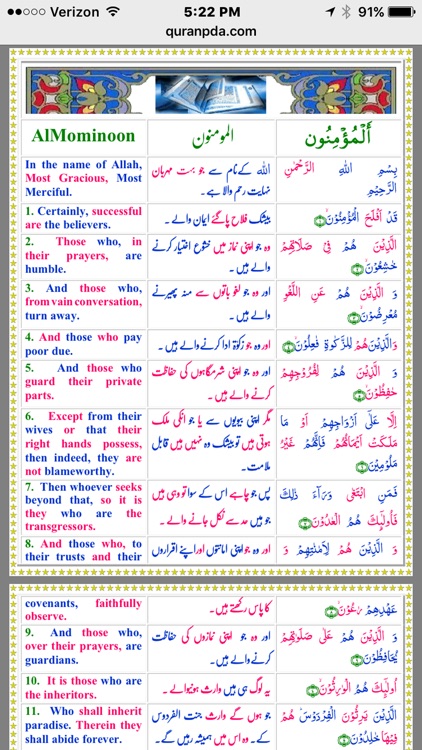 Verizon 5:22 PM 91%
quranpda.com
AlMominoon
المومنون
أَلْمُؤْمِنُون
In the name of Allah,
Most Gracious, Most
Merciful.
اللہ کےنام سے جو بہت مہربان
نہایت رحم والا ہے۔
بِسْمِ اللهِ الرَّحْمٰنِ
الرَّحِيْمِ
1. Certainly, successful
are the believers.
بیشک فلاح پاگئے ایمان والے۔
قَدْ اَفْلَحَ الْمُؤْمِنُوْنَ
2. Those who, in
their prayers, are
humble.
وہ جو اپنی نماز میں خشوع اختیار کرنے
والے ہیں۔
الَّذِيْنَ هُمْ فِيْ صَلَاتِهِمْ
خٰشِعُوْنَ
3. And those who,
from vain conversation,
turn away.
اور وہ جو لغو باتوں سے منہ پھیرنے
والے ہیں۔
وَ الَّذِيْنَ هُمْ عَنِ اللَّغْوِ
مُعْرِضُوْنَ
4. And those who pay
poor due.
اور وہ جو زکوٰۃ ادا کرنےوالے ہیں۔
وَالَّذِيْنَ هُمْ لِلزَّكٰوةِ فٰعِلُوْنَ
5. And those who
guard their private
parts.
اور وہ جو اپنی شرمگاہوں کی حفاظت
کرنے والے ہیں۔
وَ الَّذِيْنَ هُمْ لِفُرُوْجِهِمْ
حٰفِظُوْنَ
6. Except from their
wives or that their
right hands possess,
then indeed, they are
not blameworthy.
مگر اپنی بیویوں سے یا جو انکی ملک
ہوتی ہیں تو بیشک وہ نہیں ہیں قابل
ملامت۔
اِلَّا عَلٰٓى اَزْوَاجِهِمْ اَوْ مَا
مَلَكَتْ اَيْمَانُهُمْ فَاِنَّهُمْ غَيْرُ
مَلُوْمِيْنَ
7. Then whoever seeks
beyond that, so it is
they who are the
transgressors.
پس جو چاہے اس کے سوا تو وہی ہیں
جو ہیں حد سے نکل جانے والے۔
فَمَنِ ابْتَغٰى وَرَآءَ ذٰلِكَ
فَاُولٰٓئِكَ هُمُ الْعٰدُوْنَ
8. And those who, to
their trusts and their
اور وہ جو اپنی امانتوں اوراپنے اقراروں
وَ الَّذِيْنَ هُمْ لِاَمٰنٰتِهِمْ وَ
covenants, faithfully
observe.
کا پاس رکھتے ہیں۔
عَهْدِهِمْ رٰعُوْنَ
9. And those who,
over their prayers, are
guardians.
اور وہ جو اپنی نمازوں کی حفاظت
کرنےوالے ہیں۔
وَ الَّذِيْنَ هُمْ عَلٰى صَلَوٰتِهِمْ
يُحَافِظُوْنَ
10. It is those who are
the inheritors.
یہ لوگ ہی ہیں وارث ہونیوالے۔
اُولٰٓئِكَ هُمُ الْوٰرِثُوْنَ
11. Who shall inherit
paradise. Therein they
shall abide forever.
جو ہوں گے وارث جنت الفردوس
کے۔ وہ اس میں ہمیشہ رہیں گے۔
الَّذِيْنَ يَرِثُوْنَ الْفِرْدَوْسَ هُمْ
فِيْهَا خٰلِدُوْنَ